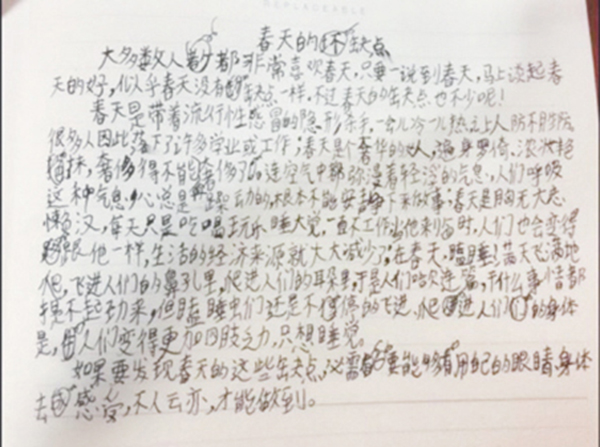 春天的坏缺点
大多数人都非常喜欢春天,只要一说到春天,马上谈起春
天的好,似乎春天没有缺点一样,不过春天的缺点也不少呢!
春天是带着流行性感冒的隐形杀手,一会儿冷一儿热之上人防不胜防
很多人因此落下了许多学业或工作;春天是个奢华的人,遍身罗倚,浓妆艳
抹,奢侈得不能奢侈了。连空气中都弥漫着轻淫的气息,人们呼吸
这种气息,心总是动的,根本不能安静下来做事;春天是胸无大志
懒汉,每天只是吃喝玩乐,睡大觉,一直不工作,当他来到时,人们也会变得
跟他一样,生活的经济来源就大大减少了;在春天,瞌睡虫满天飞,满地
爬,飞进人们的鼻孔里,爬进人们的耳朵里,于是人们哈欠连篇,干什么事情都
提不起劲来,但瞌睡虫们还是不停的飞进,爬进人们的身体
是,人们变得更加四肢乏力,只想睡觉。
如果要发现春天的这些缺点,必需要能够用自己的眼睛、身体
去感受,不人云亦,才能做到。